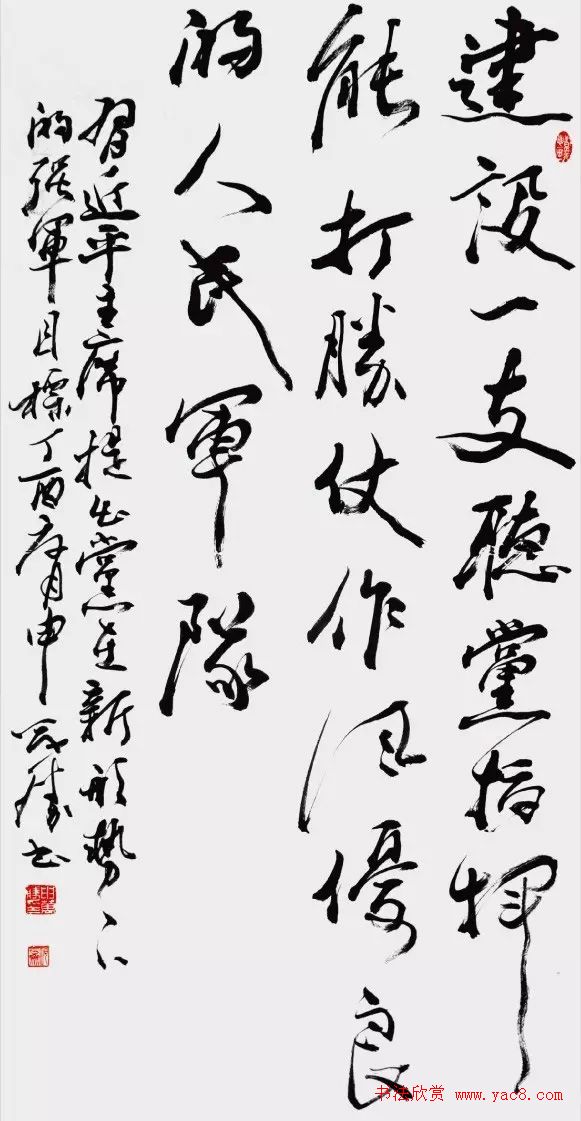 建設一支聽黨指揮
能打勝仗作风優良
的人民軍隊
習近平主席提出黨在新形勢下
的强軍目標丁酉月申万勝书
书法欣赏 www.yac8.com